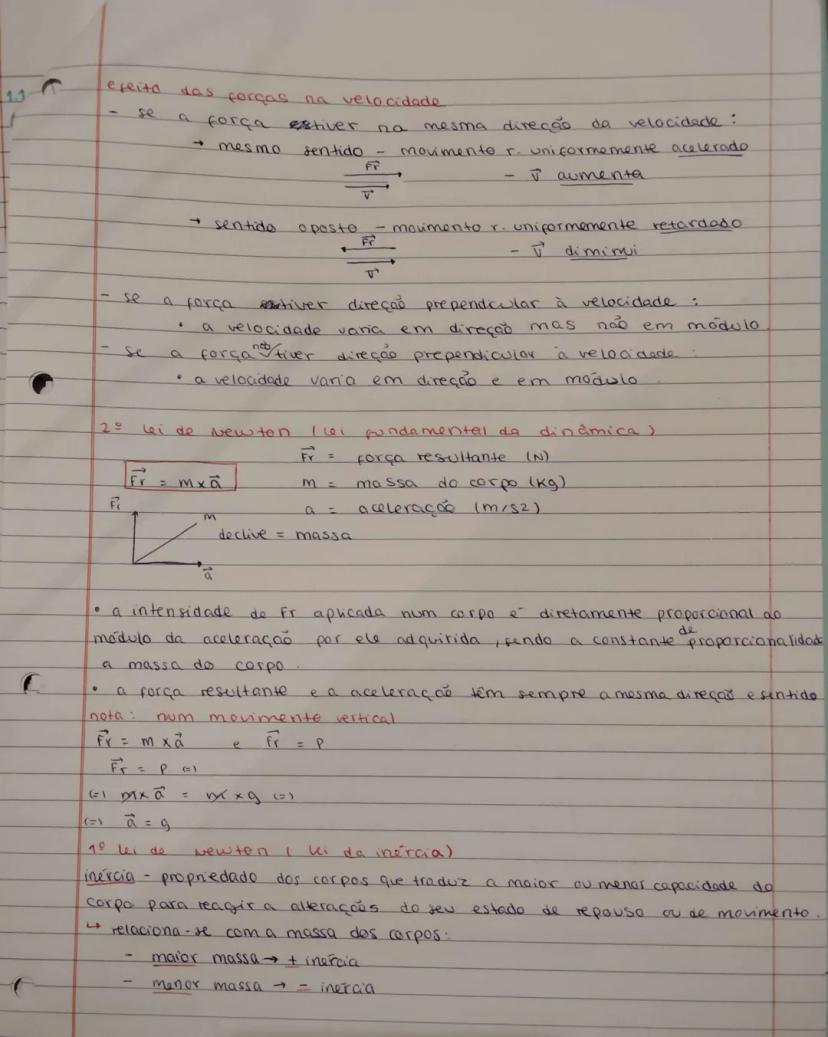 1.1
efeito das forças na velocidade
- se a força estiver na mesma direção da velocidade :
→ mesmo sentido - movimento r. uniformemente acelerado
Fr
- v aumenta
v
→ sentido oposto - movimento r. uniformemente retardado
Fr
- v diminui
v
- se a força estiver direção prependicular à velocidade :
• a velocidade varia em direção mas não em módulo
- se a força não tiver direção prependicular à velocidade :
• a velocidade varia em direção e em módulo .
2º Lei de Newton ( Lei fundamental da dinâmica )
Fr = força resultante (N)
Fr = m x a
m = massa do corpo (kg)
a = aceleração (m/s2)
Fr
m
declive = massa
a
• a intensidade de Fr aplicada num corpo é diretamente proporcional ao
módulo da aceleração por ele adquirida , sendo a constante de proporcionalidade
a massa do corpo .
• a força resultante e a aceleração têm sempre a mesma direção e sentido
nota : num movimente vertical
Fr = m x a e Fr = P
Fr = P (=)
(=) m x a = m x g (=)
(=) a = g
1º Lei de Newton ( Lei da inércia )
inércia - propriedado dos corpos que traduz a maior ou menor capacidade do
corpo para reagir a alterações do seu estado de repouso ou de movimento .
↳ relaciona-se com a massa dos corpos :
- maior massa → + inércia
- menor massa → - inércia